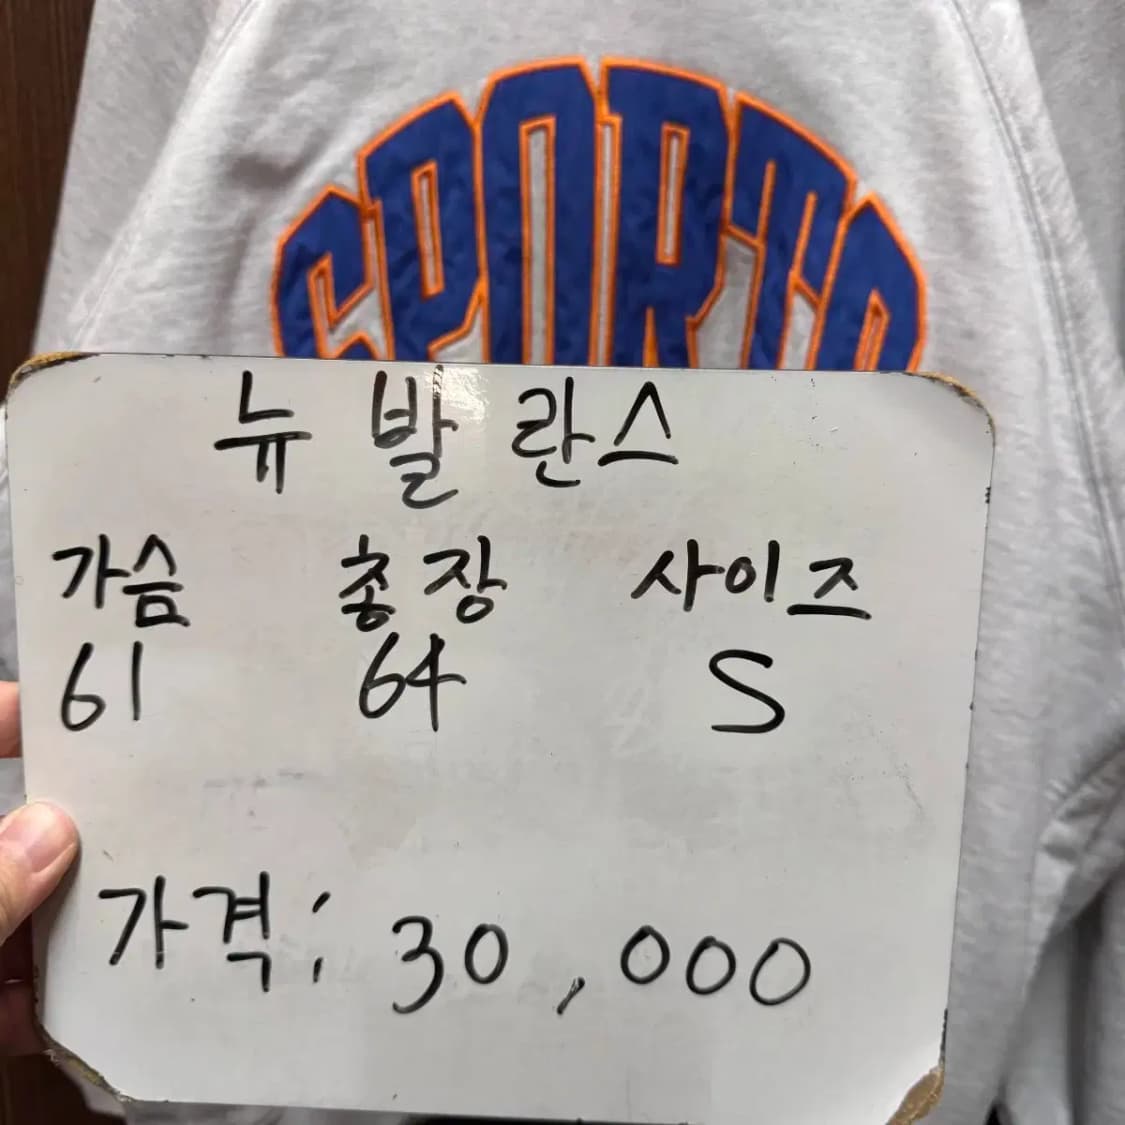 SPORTS
뉴발란스
가슴 총장 사이즈
61 64 S
가격: 30,000